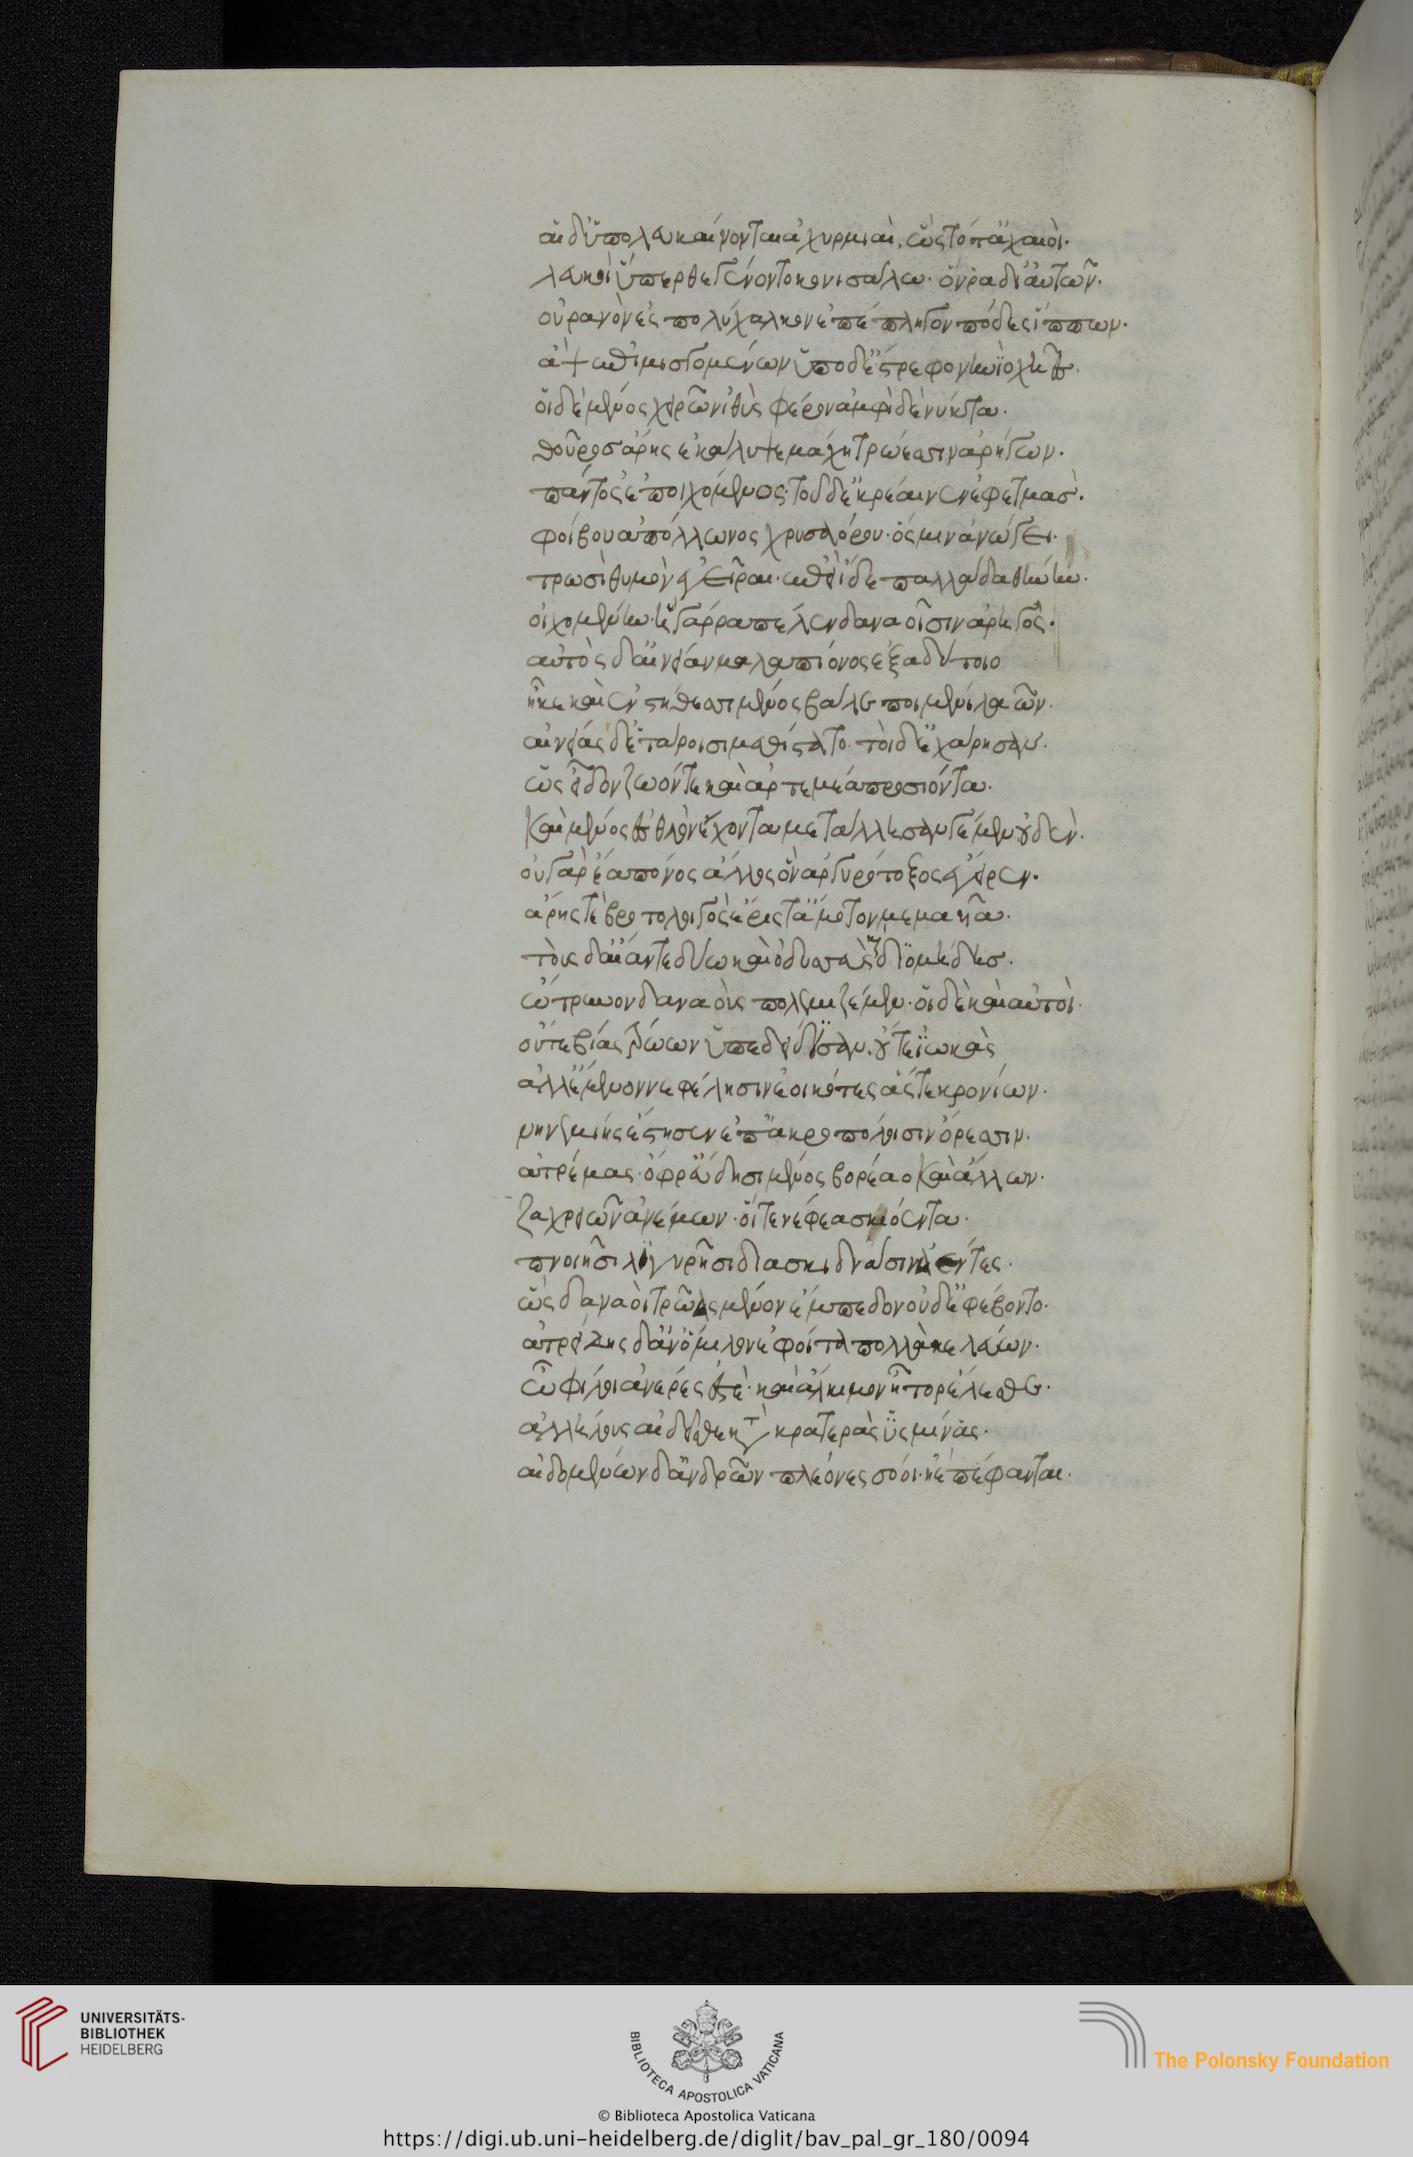 αἵ δ' ὑπολευκαίνονται ἀχυρμιαὶ. ὣς τότ' ἀχαιοὶ·
λευκοὶ ὕπερθε γένοντο κονισάλω· ὅν ῥα δι' αὐτῶν·
οὐρανὸν ἐς πολύχαλκον ἐπέπληγον πόδες ἵππων·
ἂψ ἐπιμισγομένων ὑπὸ δ' ἔστρεφον ἡνιοχῆες·
οἱ δὲ μένος χειρῶν ἰθὺς φέρον ἀμφὶ δὲ νύκτα·
θοῦρος ἄρης ἐκάλυψε μάχη τρώεσσιν ἀρήγων·
πάντοσ' ἐποιχόμενος· τοῦ δ' ἐκρέαινεν ἐφετμάσ·
φοίβου ἀπόλλωνος χρυσαόρου· ὅς μιν ἀνώγει·
τρωσὶ θυμὸν ἐγεῖραι· ἐπεὶ ἴδε παλλάδ' ἀθήνην·
οἰχομένην· ἡ γάρ ῥα πέλεν δαναοῖσιν ἀρηγός·
αὐτὸς δ' αἰνείαν μάλα πίονος ἐξ ἀδύτοιο
ἧκε καὶ ἐν στήθεσσι μένος βάλε ποιμένι λαῶν·
αἰνείας δ' ἑτάροισι μεθίστατο· τοὶ δ' ἐχάρησαν·
ὡς εἶδον ζωόν τε καὶ ἀρτεμέα προσιόντα·
καὶ μένος ἐσθλὸν ἔχοντα μετάλλησαν γε μὲν οὐδὲν·
οὐ γὰρ ἔα πόνος ἄλλος ὃν ἀργυρότοξος ἔγειρεν·
ἄρης τε βροτολοιγὸς ἔρις τ' ἄμοτον μεμαυῖα·
τοὺς δ' αἴαντε δύω καὶ ὀδυσσεὺς καὶ διομήδησ·
ὤτρυνον δαναοὺς πολεμιζέμεν· οἱ δὲ καὶ αὐτοὶ·
οὔτε βίας τρώων ὑπεδείδισαν· οὔτε ἰωκὰς
ἀλλ' ἔμενον νεφέλησιν ἐοικότες ἅς τε κρονίων·
νηνεμίης ἔστησεν ἐπ' ἀκροπόλοισιν ὄρεσσιν·
ἀτρέμας· ὄφρ' εὕδησι μένος βορέαο καὶ ἄλλων·
ζαχρειῶν ἀνέμων· οἵ τε νέφεα σκιόεντα·
πνοιῆσι λιγυρῆσι διασκιδνᾶσιν ἀέντες·
ὣς δαναοὶ τρῶας μένον ἔμπεδον οὐδ' ἐφέβοντο·
ἀτρείδης δ' ἀν' ὅμιλον ἐφοίτα πολλὰ κελεύων·
ὦ φίλοι ἀνέρες ἐστὲ· καὶ ἄλκιμον ἦτορ ἕλεσθε·
ἀλλήλους αἰδεῖσθε κατὰ κρατερὰς ὑσμίνας·
αἰδομένων δ' ἀνδρῶν πλέονες σόοι· ἠὲ πέφανται·
UNIVERSITÄTS-
BIBLIOTHEK
HEIDELBERG
BIBLIOTECA APOSTOLICA VATICANA
The Polonsky Foundation
© Biblioteca Apostolica Vaticana
https://digi.ub.uni-heidelberg.de/diglit/bav_pal_gr_180/0094